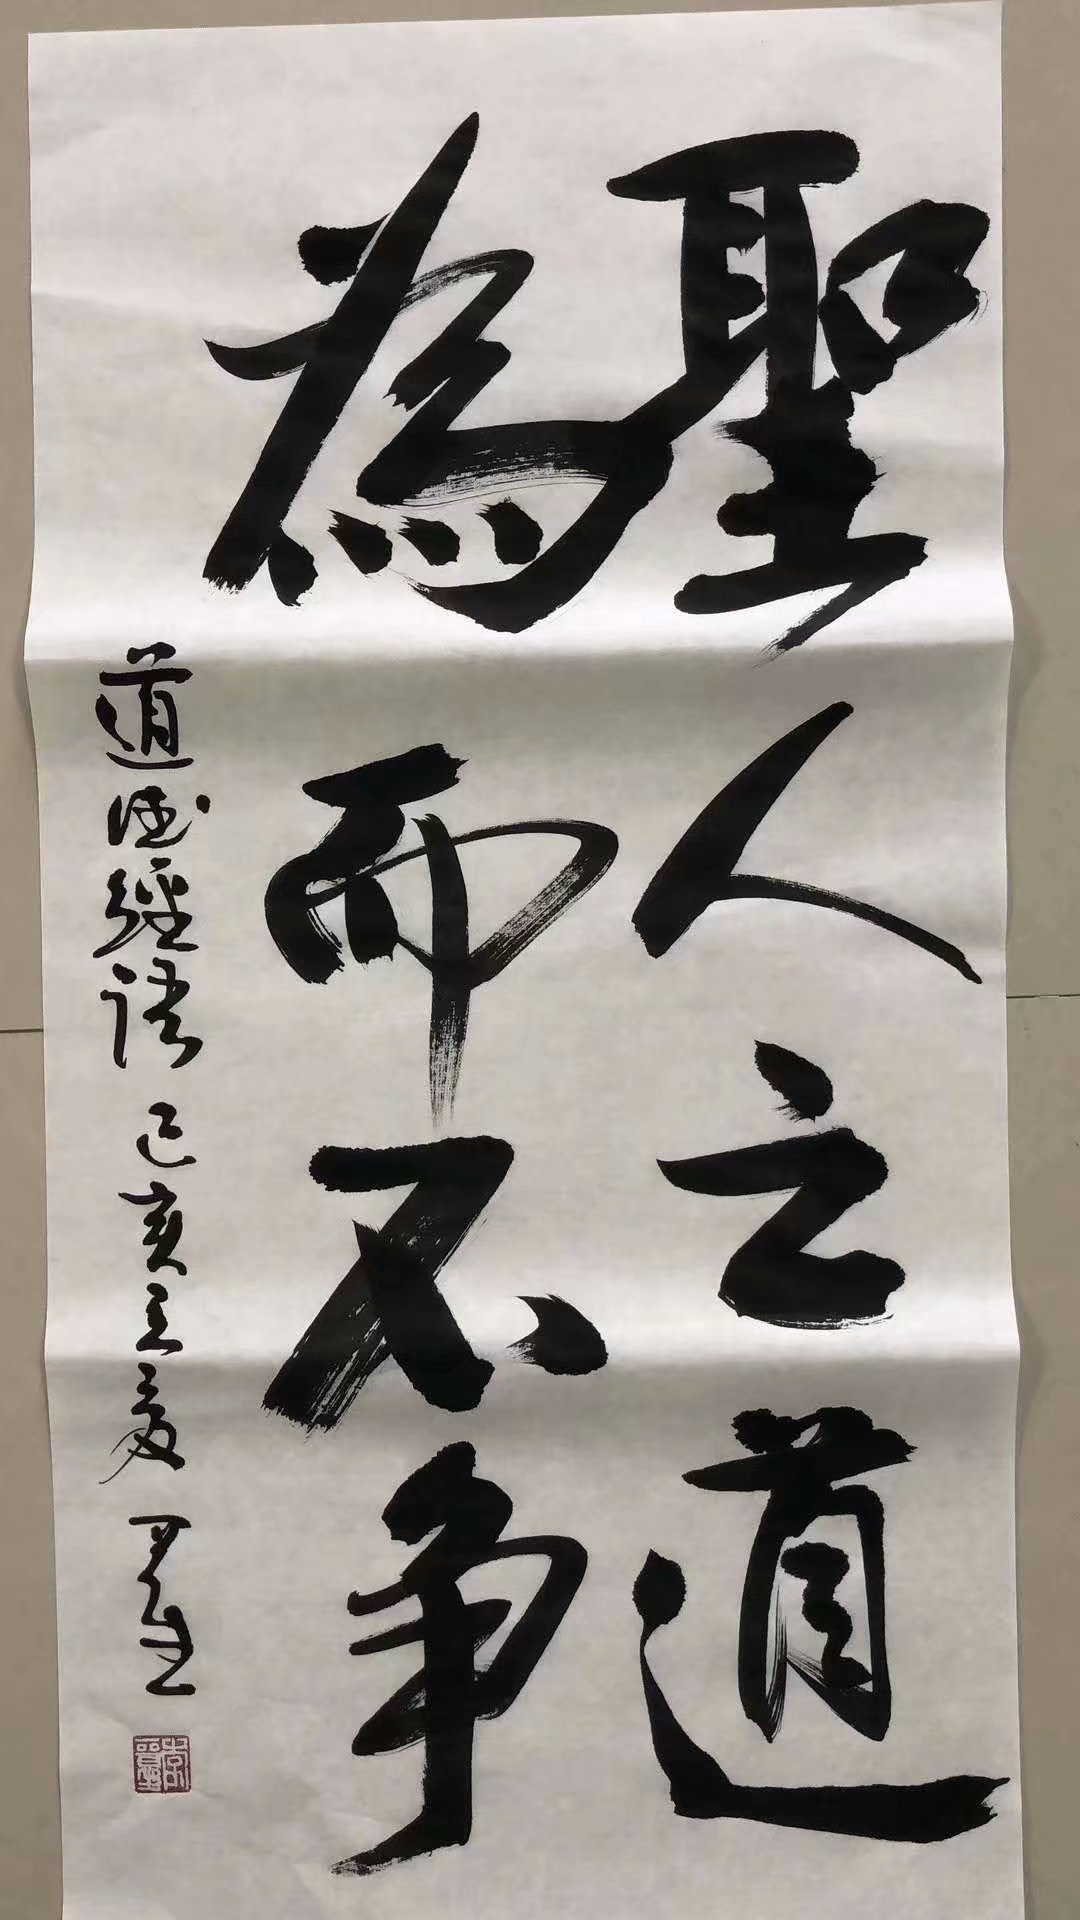 聖人之道
為而不争
道德經語 己亥立夏